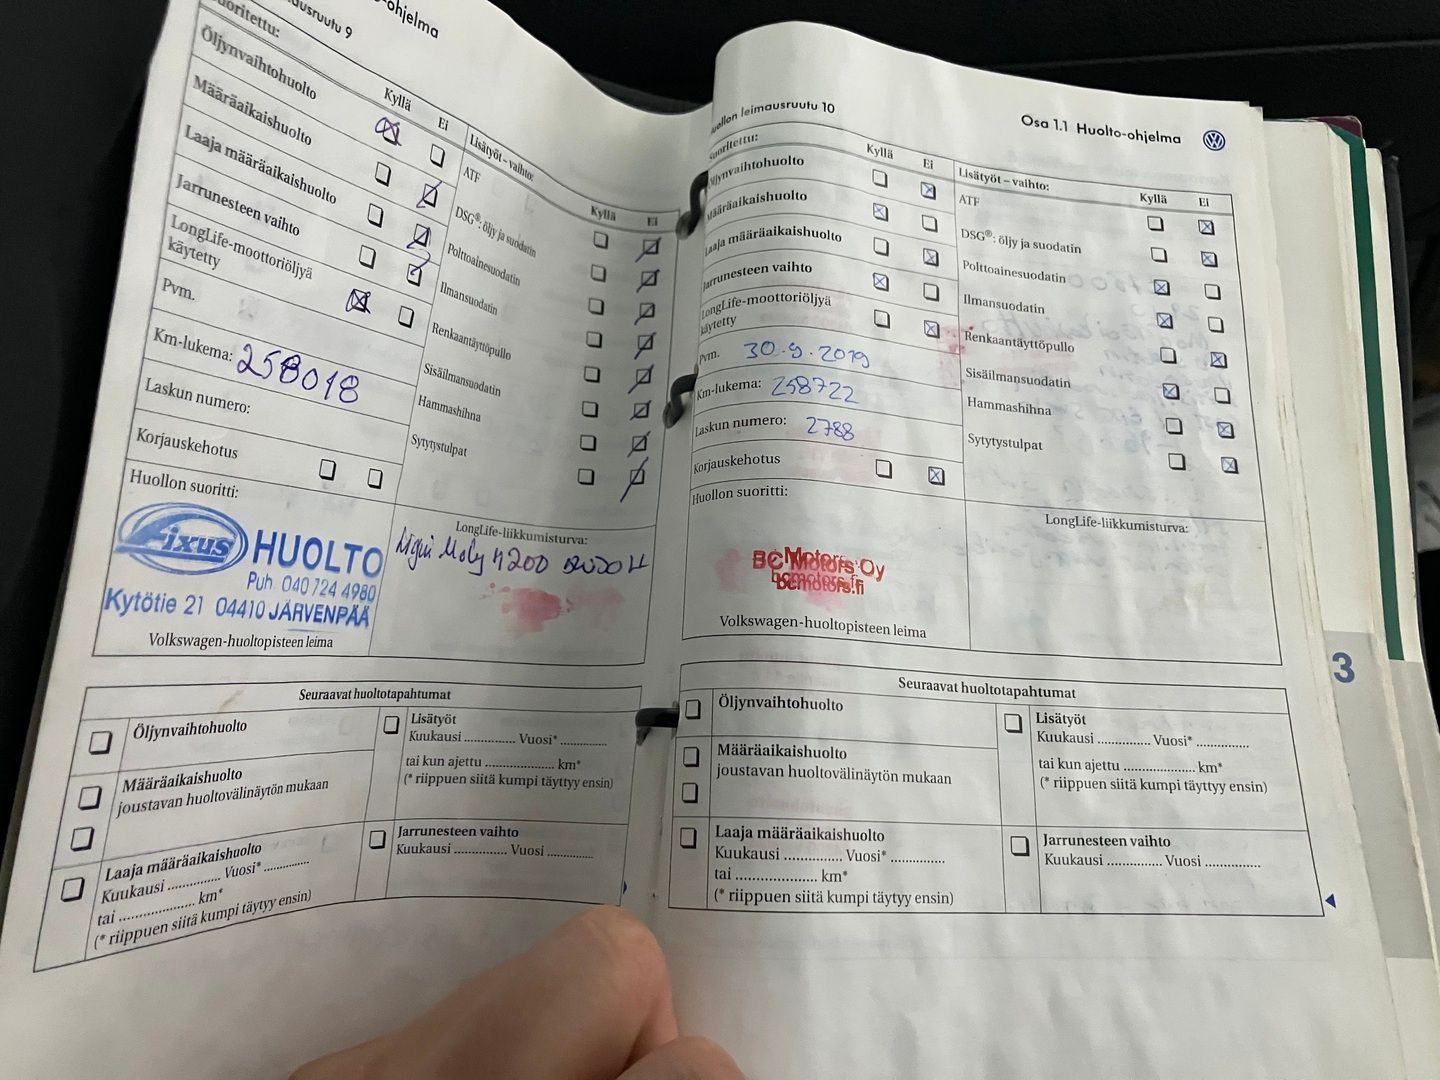 -ohjelma
mausruutu 9
Suoritettu:
Kyllä Ei
Öljynvaihtohuolto
Määräaikaishuolto
Laaja määräaikaishuolto
Jarrunesteen vaihto
LongLife-moottoriöljyä
käytetty
Pvm.
Km-lukema: 258018
Laskun numero:
Korjauskehotus
Huollon suoritti:
Fixus HUOLTO
Puh. 040 724 4980
Kytötie 21 04410 JÄRVENPÄÄ
Volkswagen-huoltopisteen leima
Lisätyöt – vaihto:
Kyllä Ei
ATF
DSG®: öljy ja suodatin
Polttoainesuodatin
Ilmansuodatin
Renkaantäyttöpullo
Sisäilmansuodatin
Hammashihna
Sytytystulpat
LongLife-liikkumisturva:
Liqui Moly 4200
Seuraavat huoltotapahtumat
Öljynvaihtohuolto
Määräaikaishuolto
joustavan huoltovälinäytön mukaan
Laaja määräaikaishuolto
Kuukausi .............. Vuosi* ............
tai .................... km*
(* riippuen siitä kumpi täytyy ensin)
Lisätyöt
Kuukausi .............. Vuosi* ............
tai kun ajettu .................. km*
(* riippuen siitä kumpi täytyy ensin)
Jarrunesteen vaihto
Kuukausi .............. Vuosi ............
Huollon leimausruutu 10
Osa 1.1 Huolto-ohjelma
Suoritettu:
Kyllä Ei
Öljynvaihtohuolto
Määräaikaishuolto
Laaja määräaikaishuolto
Jarrunesteen vaihto
LongLife-moottoriöljyä
käytetty
Pvm. 30.9.2019
Km-lukema: 258722
Laskun numero: 2788
Korjauskehotus
Huollon suoritti:
BC Motors Oy
bcmotors.fi
Volkswagen-huoltopisteen leima
Lisätyöt – vaihto:
Kyllä Ei
ATF
DSG®: öljy ja suodatin
Polttoainesuodatin
Ilmansuodatin
Renkaantäyttöpullo
Sisäilmansuodatin
Hammashihna
Sytytystulpat
LongLife-liikkumisturva:
Seuraavat huoltotapahtumat
Öljynvaihtohuolto
Määräaikaishuolto
joustavan huoltovälinäytön mukaan
Laaja määräaikaishuolto
Kuukausi .............. Vuosi* ............
tai .................... km*
(* riippuen siitä kumpi täytyy ensin)
Lisätyöt
Kuukausi .............. Vuosi* ............
tai kun ajettu .................. km*
(* riippuen siitä kumpi täytyy ensin)
Jarrunesteen vaihto
Kuukausi .............. Vuosi ............
3